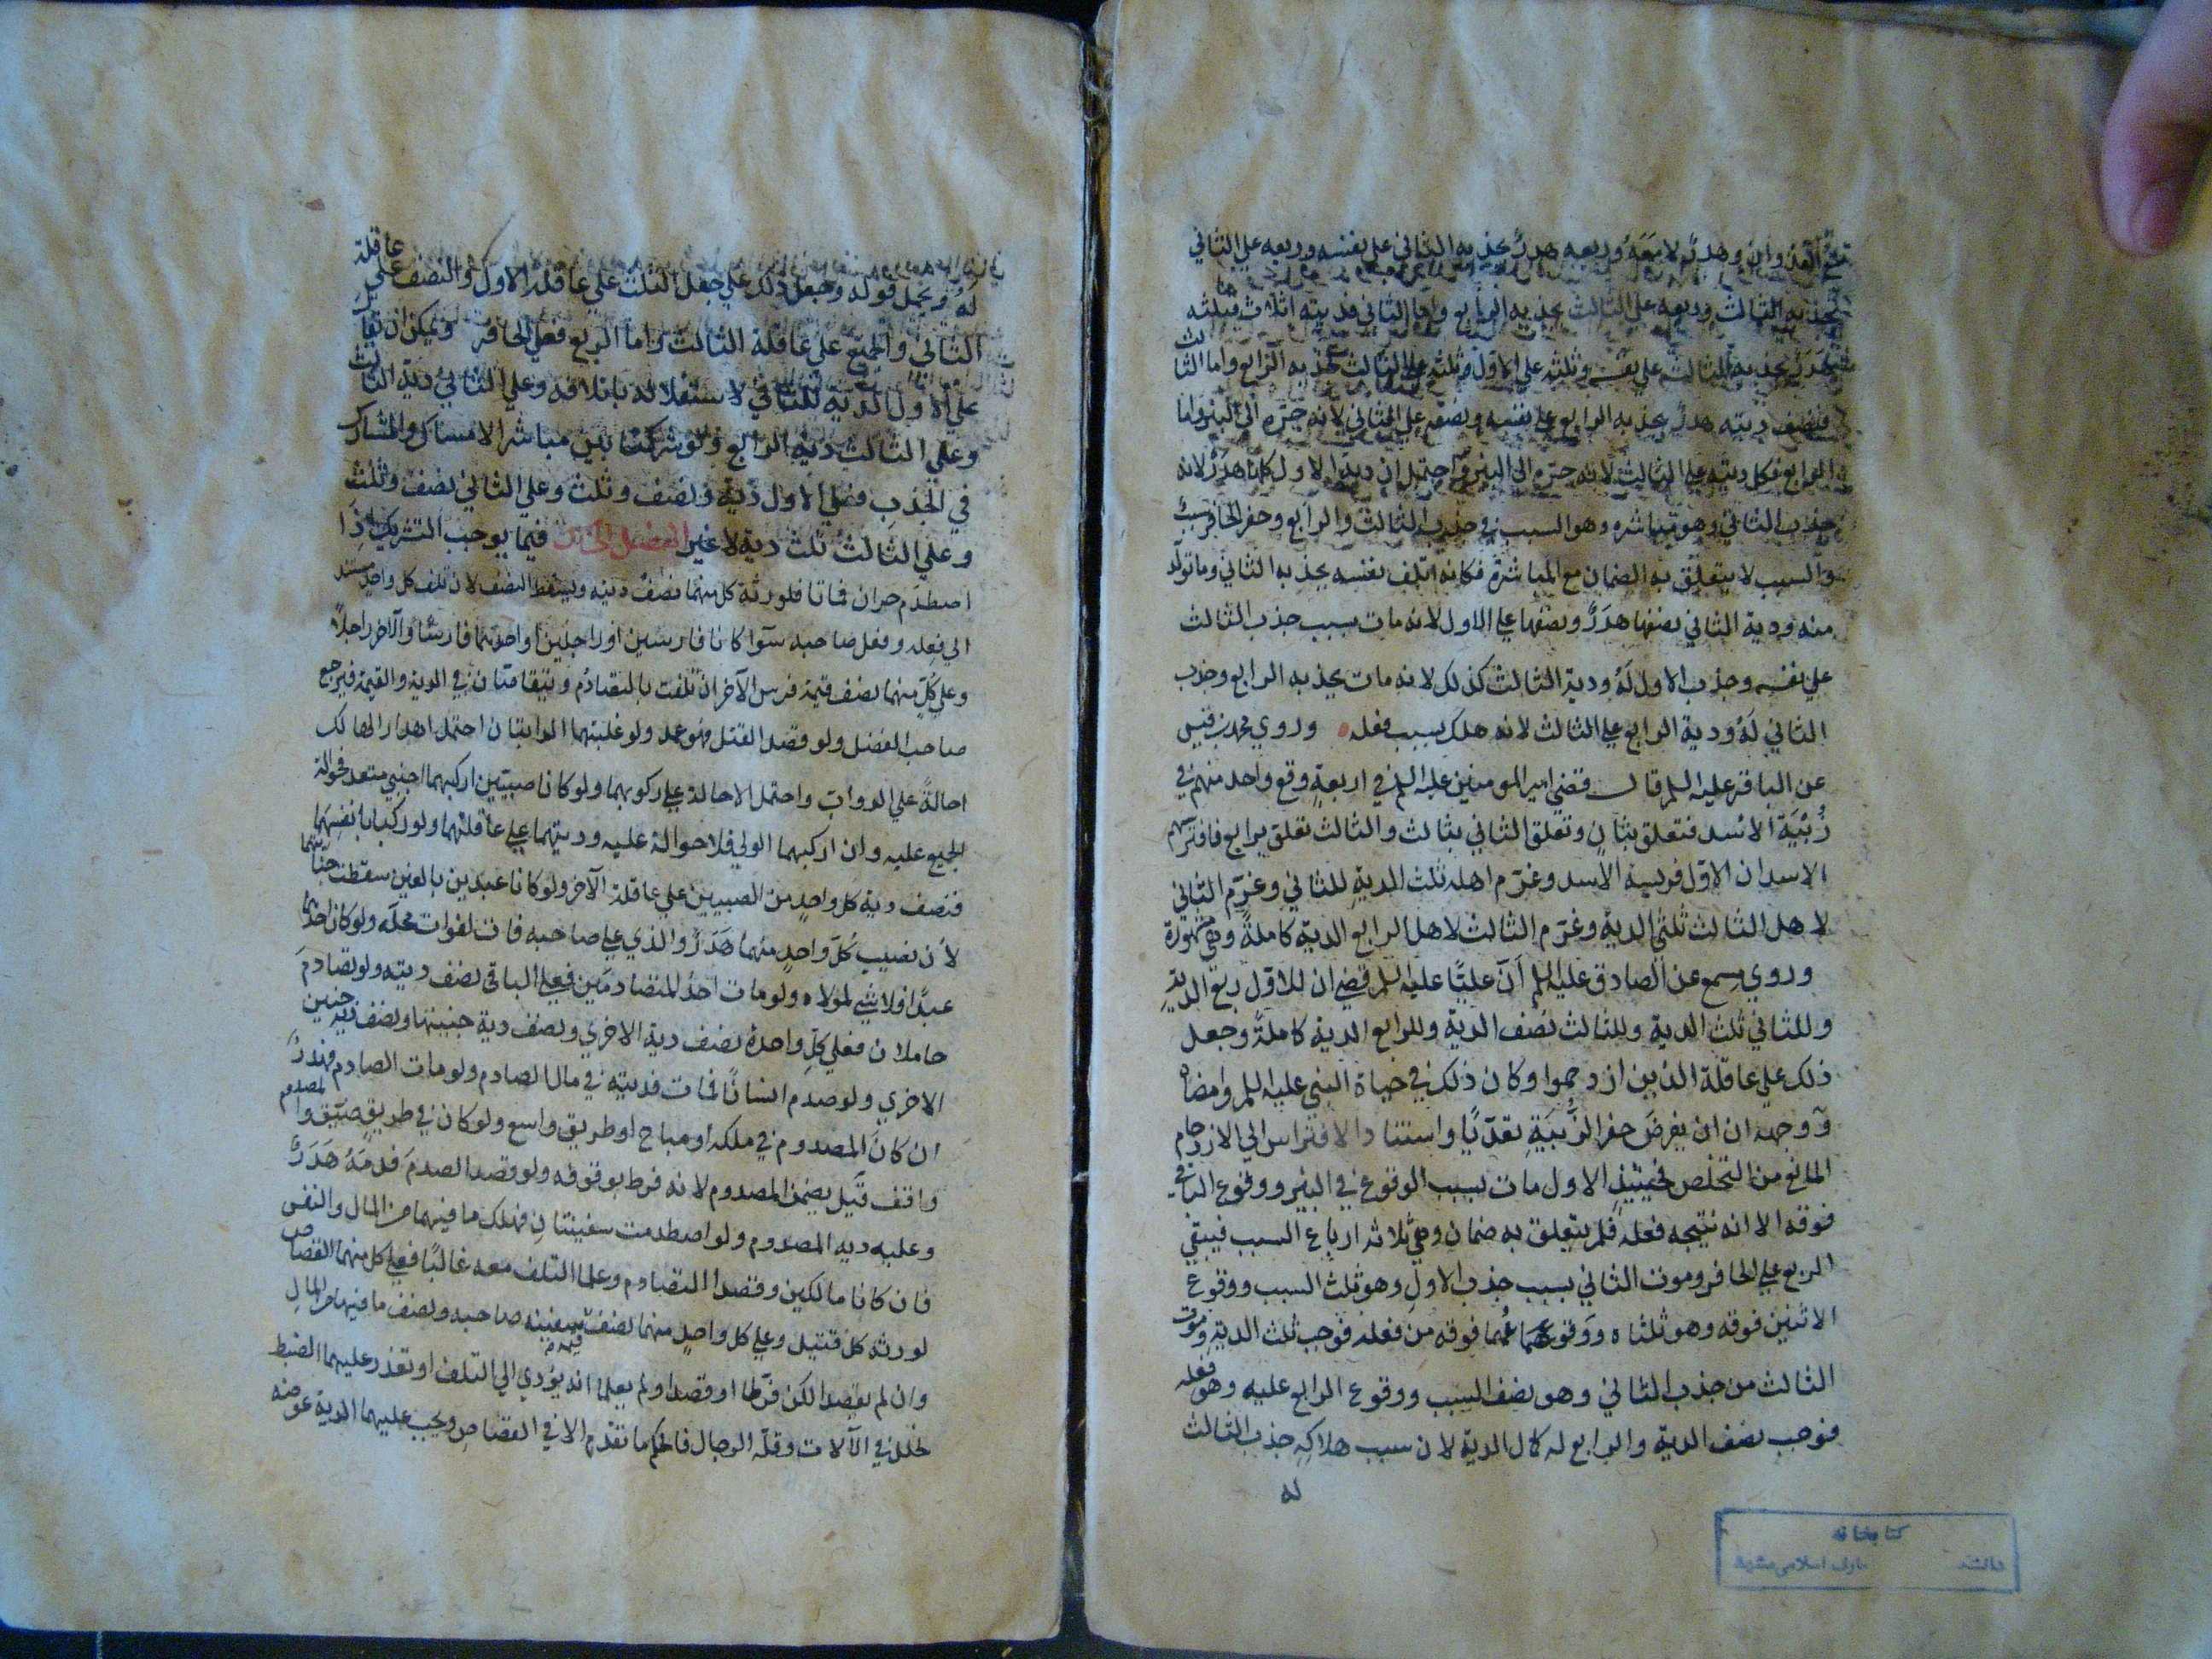 مع العدوان وهدر لا معه وربعه هدر بجذبه الثاني على نفسه وربعه علي الثاني
بجذبه الثالث وربعه على الثالث بجذبه الرابع واما الثاني فديته اثلاث فثلثه
هدر بجذبه الثالث علي نفسه وثلثه علي الاول وثلثه على الثالث بجذبه الرابع واما الثالث
فنصف ديته هدر بجذبه الرابع على نفسه ونصفه علي الثاني لانه جره الى البئر واما
الرابع فكل ديته على الثالث لانه جره الى البئر واحتمل ان دية الاول كلها هدر لانه
جذب الثاني وهو مباشره وهو السبب في جذب الثالث والرابع وحفر الحافر سبب
والسبب لا يتعلق به الضمان مع المباشرة فكانه اتلف نفسه بجذبه الثاني وما تولد
منه ودية الثاني نصفها هدر ونصفها على الاول لانه مات بسبب جذب الثالث
علي نفسه وجذب الاول له ودية الثالث كذلك لانه مات بجذبه الرابع وجذب
الثاني له ودية الرابع على الثالث لانه هلك بسبب فعله وروي محمد بن قيس
عن الباقر عليه السلم قال قضي امير المومنين عليه السلم في اربعة وقع واحد منهم في
زبية الاسد فتعلق بثان وتعلق الثاني بثالث والثالث تعلق برابع فافترسهم
الاسد ان الاول فريسة الاسد وغرم اهله ثلث الدية للثاني وغرم الثاني
لاهل الثالث ثلثي الدية وغرم الثالث لاهل الرابع الدية كاملة وهي مشهورة
وروي مسمع عن الصادق عليه السلم ان عليا عليه السلم قضي ان للاول ربع الدية
وللثاني ثلث الدية وللثالث نصف الدية وللرابع الدية كاملة وجعل
ذلك علي عاقلة الذين ازدحموا وكان ذلك في حياة النبي عليه السلم وامضاه
ووجهه ان يفرض حفر الزبية تعديا واستناد الافتراس الي الازدحام
المانع من التخلص فحينئذ الاول مات بسبب الوقوع في البئر ووقوع الباقي
فوقه الا انه نتيجه فعله فلم يتعلق به ضمان وهي ثلاثه ارباع السبب فيبقي
الربع علي الحافر وموت الثاني بسبب جذب الاول وهو ثلث السبب ووقوع
الاثنين فوقه وهو ثلثاه ووقوعهما فوقه من فعله فوجب ثلث الدية وموت
الثالث من جذب الثاني وهو نصف السبب ووقوع الرابع عليه وهو فعله
فوجب نصف الدية والرابع له كمال الدية لان سبب هلاكه جذب الثالث
له
كتابخانه
معارف اسلامی مشهد
له ويحمل قوله وجعل ذلك علي جعل الثلث علي عاقلة الاول والنصف على عاقلة
الثاني والجميع علي عاقلة الثالث واما الربع فعلي الحافر ويمكن ان يقال
علي الاول الدية للثاني لاستقلاله باتلافه وعلي الثاني دية الثالث
وعلي الثالث دية الرابع ولو شركنا بين مباشر الامساك والمشارك
في الجذب فعلي الاول دية ونصف وثلث وعلي الثاني نصف وثلث
وعلي الثالث ثلث دية لا غير الفصل فيما يوجب التشريك اذا
اصطدم حران فماتا فلورثة كل منهما نصف ديته ويسقط النصف لان تلف كل واحد مستند
الي فعله وفعل صاحبه سوا كانا فارسين او راجلين او احدهما فارسا والآخر راجلا
وعلي كل منهما نصف قيمة فرس الآخر ان تلفت بالتصادم ويتقاصان في الدية والقيمة فيرجع
صاحب الفضل ولو قصد القتل فهو عمد ولو غلبتهما الدابتان احتمل اهدار الهالك
احالة علي الدواب واحتمل الاحالة على ركوبهما ولو كانا صبيين اركبهما اجنبي متعد فحوالة
الجميع عليه وان اركبهما الولي فلا حوالة عليه وديتهما على عاقلتهما ولو ركبا بانفسهما
فنصف دية كل واحد من الصبيين علي عاقلة الآخر ولو كانا عبدين بالغين سقطت جنايتهما
لان نصيب كل واحد منهما هدر والذي علي صاحبه فات لفوات محله ولو كان احدهما
عبدا فلا شي لمولاه ولو مات احد المتصادمين فعلى الباقي نصف ديته ولو تصادم
حاملان فعلي كل واحدة نصف دية الاخري ونصف دية جنينها ونصف دية جنين
الاخري ولو صدم انسانا فمات فديته في مال الصادم ولو مات الصادم فهدر
ان كان المصدوم في ملكه او مباح او طريق واسع ولو كان في طريق ضيق والمصدوم
واقف قيل يضمن المصدوم لانه فرط بوقوفه ولو قصد الصدم فدمه هدر
وعليه ديه المصدوم ولو اصطدمت سفينتان فهلك ما فيهما من المال والنفس
فان كانا مالكين وقصدا التصادم وعلما التلف معه غالبا فعلي كل منهما القصاص
لورثه كل قتيل وعلي كل واحد منهما نصف قيمة سفينه صاحبه ونصف ما فيها من المال
وان لم يقصدا لكن فرطا او قصدا ولم يعلما انه يؤدي الي التلف او تعذر عليهما الضبط
لخلل في الآلات وقلة الرجال فالحكم ما تقدم الا في القصاص ويجب عليهما الدية عوضه